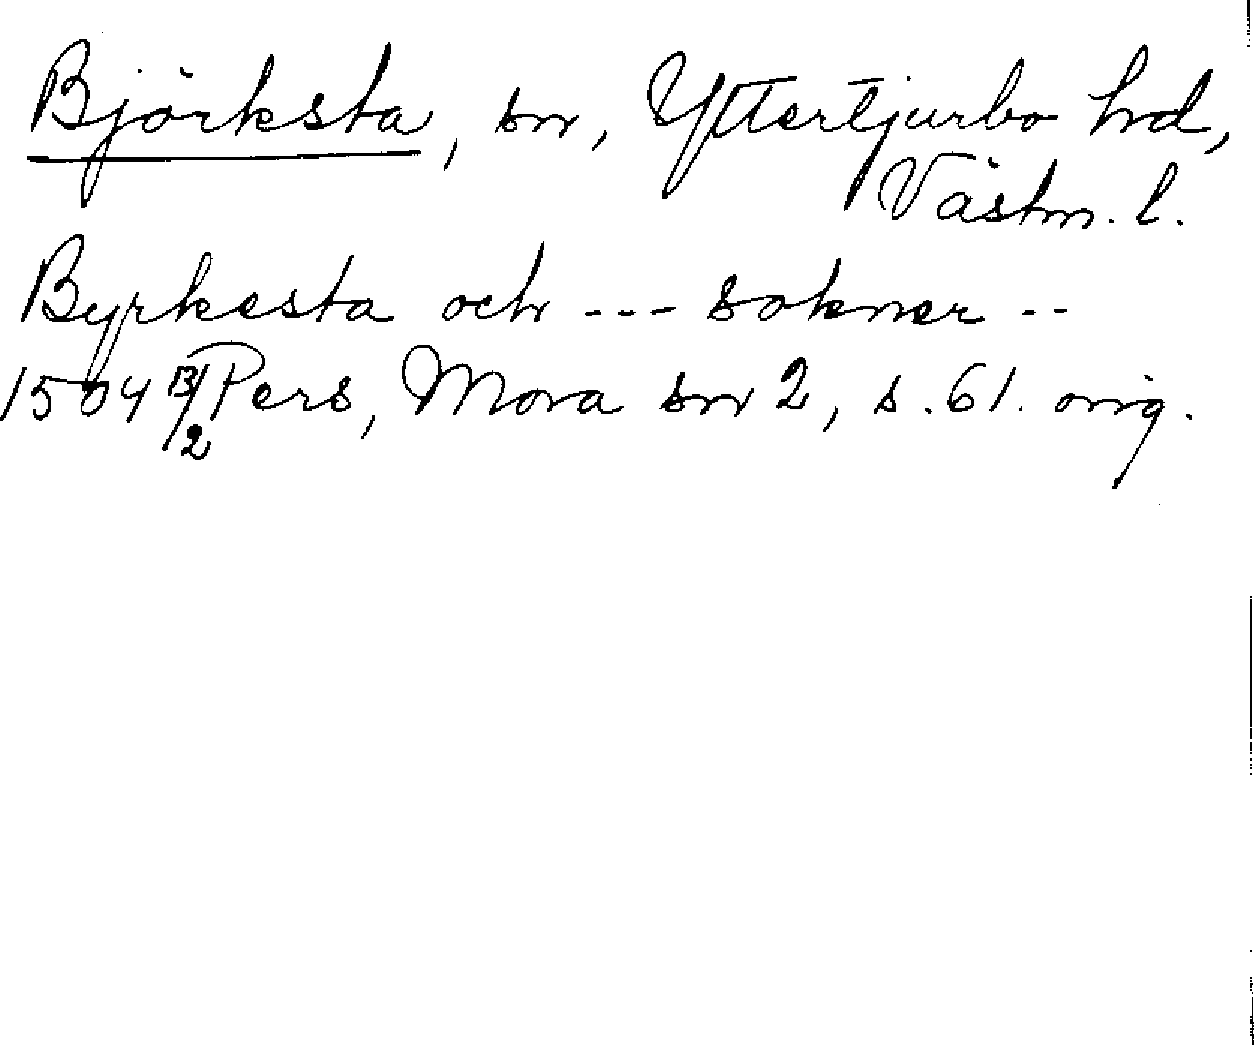 Björksta, sn, Yttertjurbo hd,
Västm. l.
Byrkesta och --- sokner --
1504 13/2 Pers, Mora sn 2, s. 61. orig.